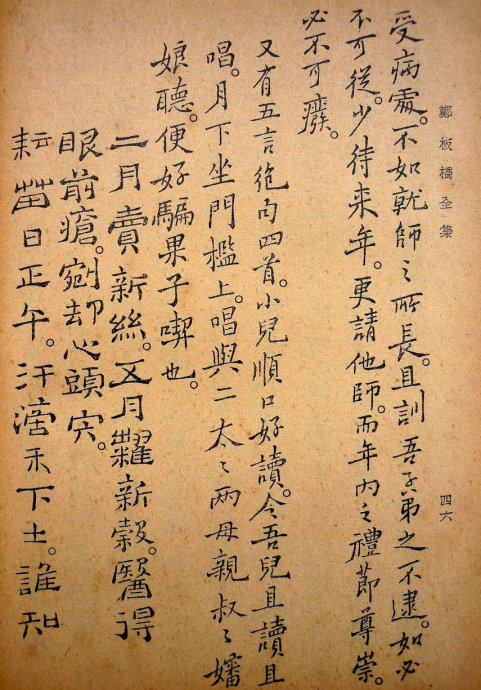 鄭板橋全集
四六
受病處。不如就師之所長。且訓吾子弟之不逮。如必
不可從。少待来年。更請他師。而年內之禮節尊崇。
必不可癈。
又有五言絶句四首。小兒順口好讀。令吾兒且讀且
唱。月下坐門檻上。唱與二太〻兩母親叔〻嬸
娘聽。便好騙果子喫也。
二月賣新絲。五月糶新穀。醫得
眼前瘡。剜却心頭宍。
耘苗日正午。汗滴禾下土。誰知